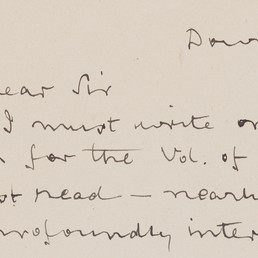 Dow
ear Sir
I must write on
for the Vol. of
ot read — nearl
rofoundly inter